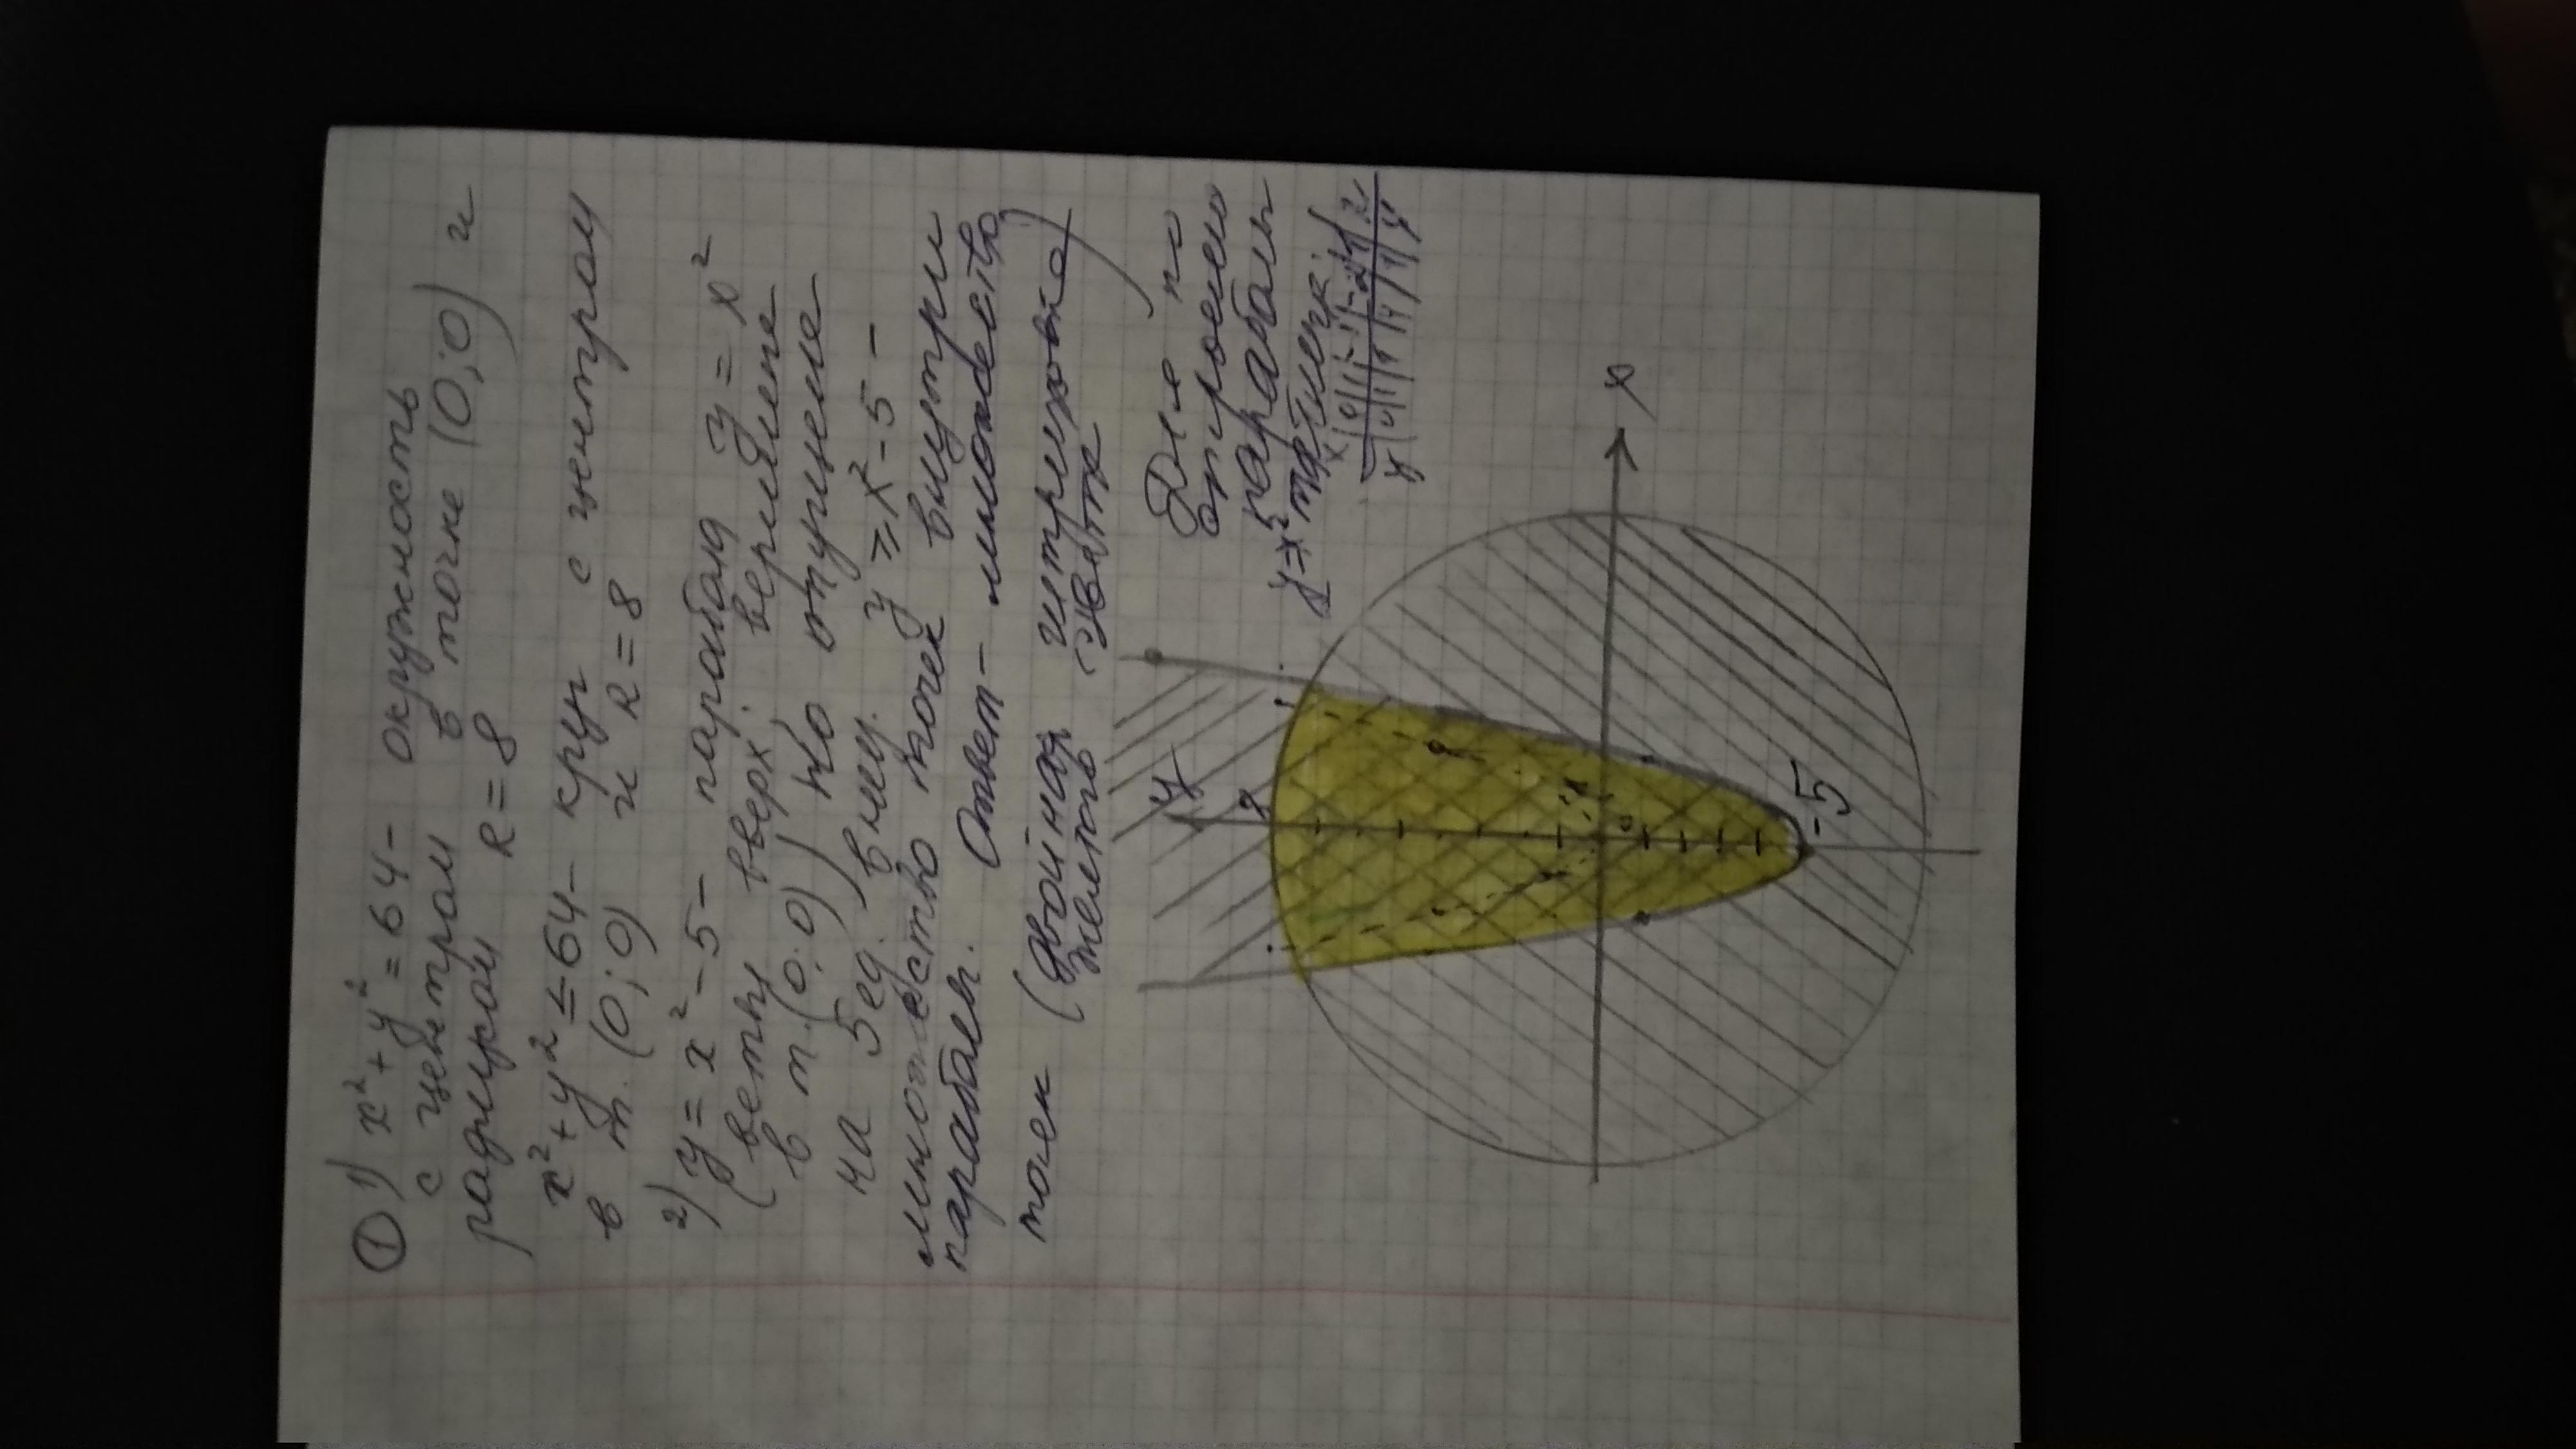 ① 1) x² + y² = 64 - окружность
с центром в точке (0; 0) и
радиусом R = 8
x² + y² ≤ 64 - круг с центром
в т. (0; 0) и R = 8
2) y = x² - 5 - парабола y = x²
(ветви вверх, вершина
в т. (0; 0)) но опущена
на 5 ед. вниз. y ≥ x² - 5 -
множество точек внутри
параболы. Ответ - множество
точек (двойная штриховка)
желтого цвета
Для по
строения
параболы
y = x² табличк:
x | 0 | 1 | -1 | -2 | 2
y | 0 | 1 | 1 | 4 | 4
y
8
x
0
-5